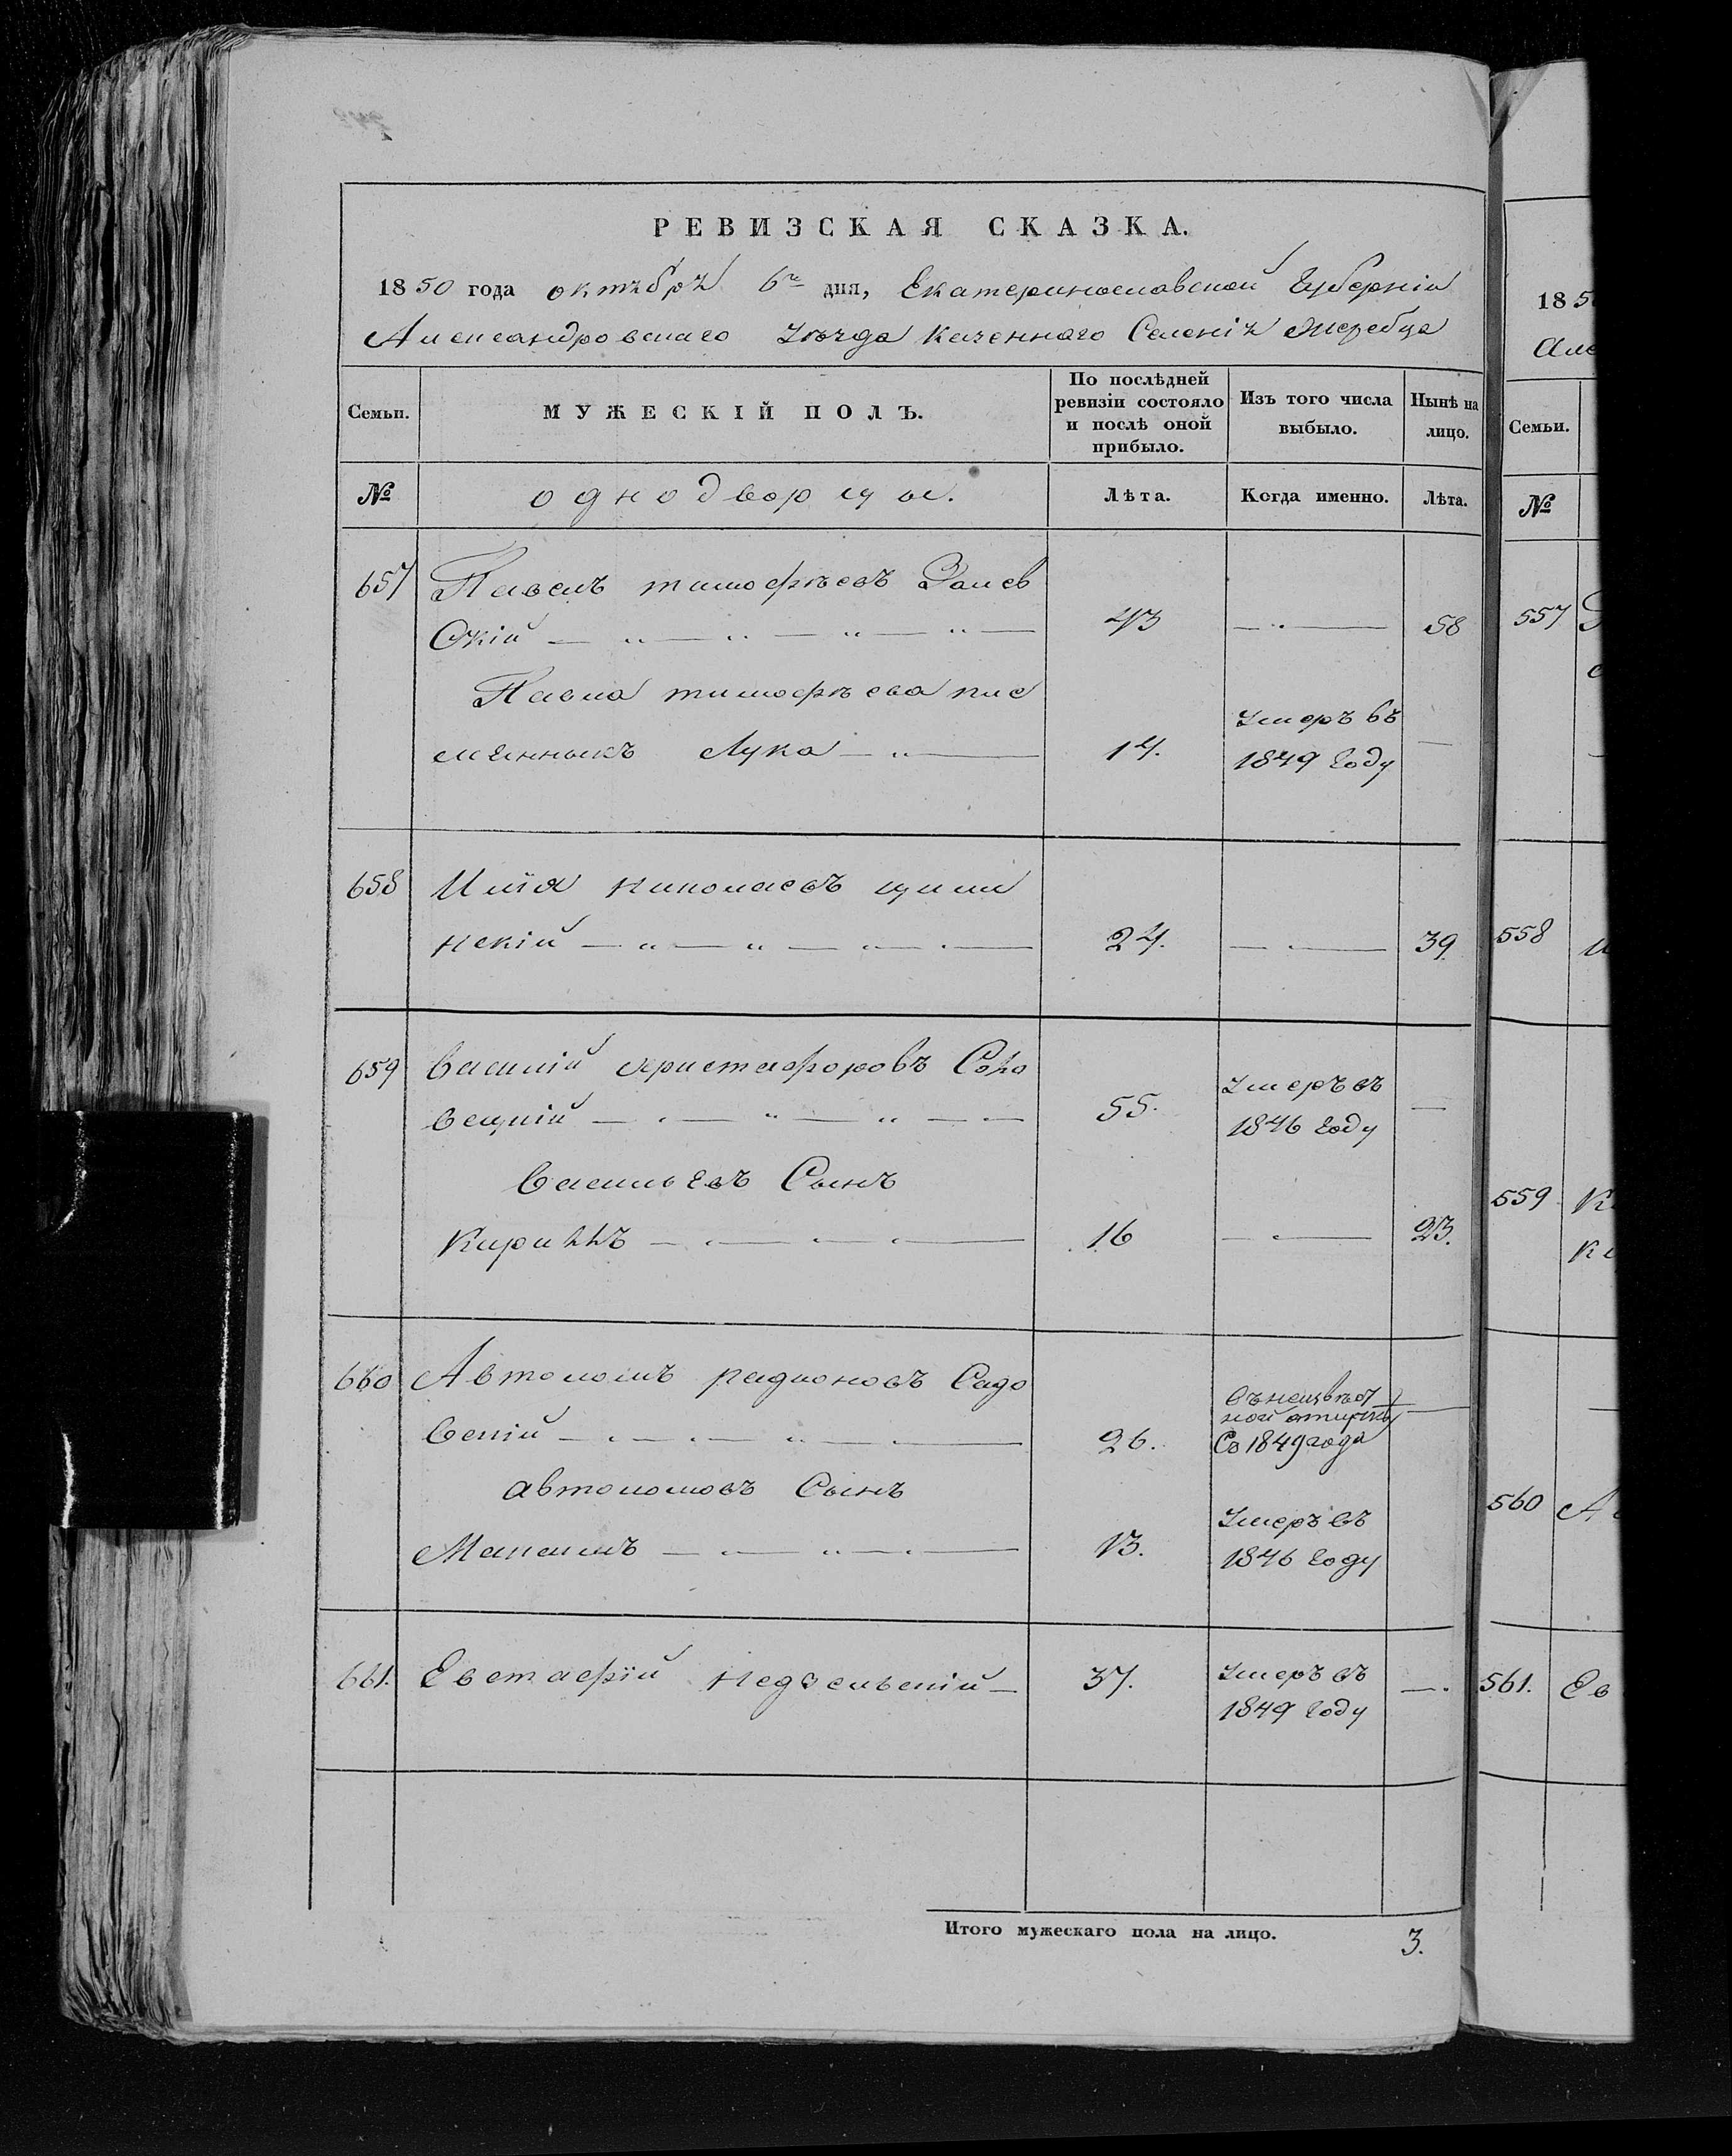 РЕВИЗСКАЯ СКАЗКА.
1850 года октября 6го дня, Екатеринославской Губерніи
Александровскаго Уѣзда Казеннаго Селенія Жеребца
Семьи.
МУЖЕСКІЙ ПОЛЪ.
По послѣдней ревизіи состояло и послѣ оной прибыло.
Изъ того числа выбыло.
Нынѣ на лицо.
№
однодворцы.
Лѣта.
Когда именно.
Лѣта.
657 Павелъ тимофѣевъ Залев
Скій 43 58
Павла тимофѣева пле
мянникъ Лука 14. Умеръ въ
1849 Году
658 Илія николаевъ
нскій 24. 39.
659 Василій христафоровъ Сохо
вецкій 55. Умеръ въ
1846 Году
Васильевъ Сынъ
Кирилъ 16 23.
660 Автономъ радионовъ Садо
вскій 26. въ неизвѣст
ной отлучкѣ
Со 1849 года
автономовъ Сынъ
Максимъ 13. Умеръ въ
1846 Году
661. Евстафій недзельскій 37. Умеръ въ
1849 Году
Итого мужескаго пола на лицо. 3.
185
Але
Семьи.
№
557
558
559
560
561. Ев